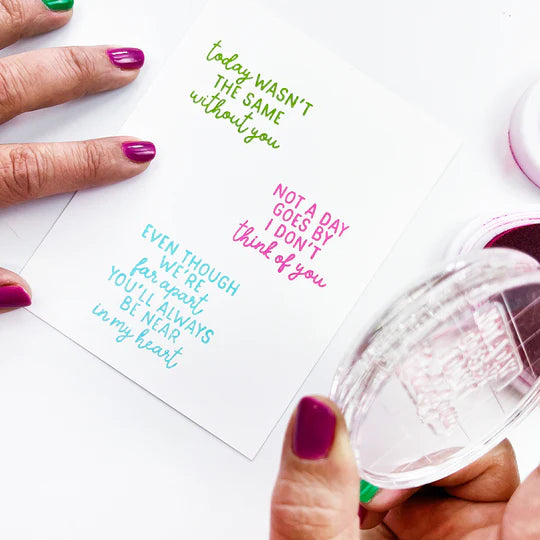 today WASN'T
THE SAME
without you
NOT A DAY
GOES BY
I DON'T
think of you
EVEN THOUGH
WE'RE
far apart
YOU'LL ALWAYS
BE NEAR
in my heart